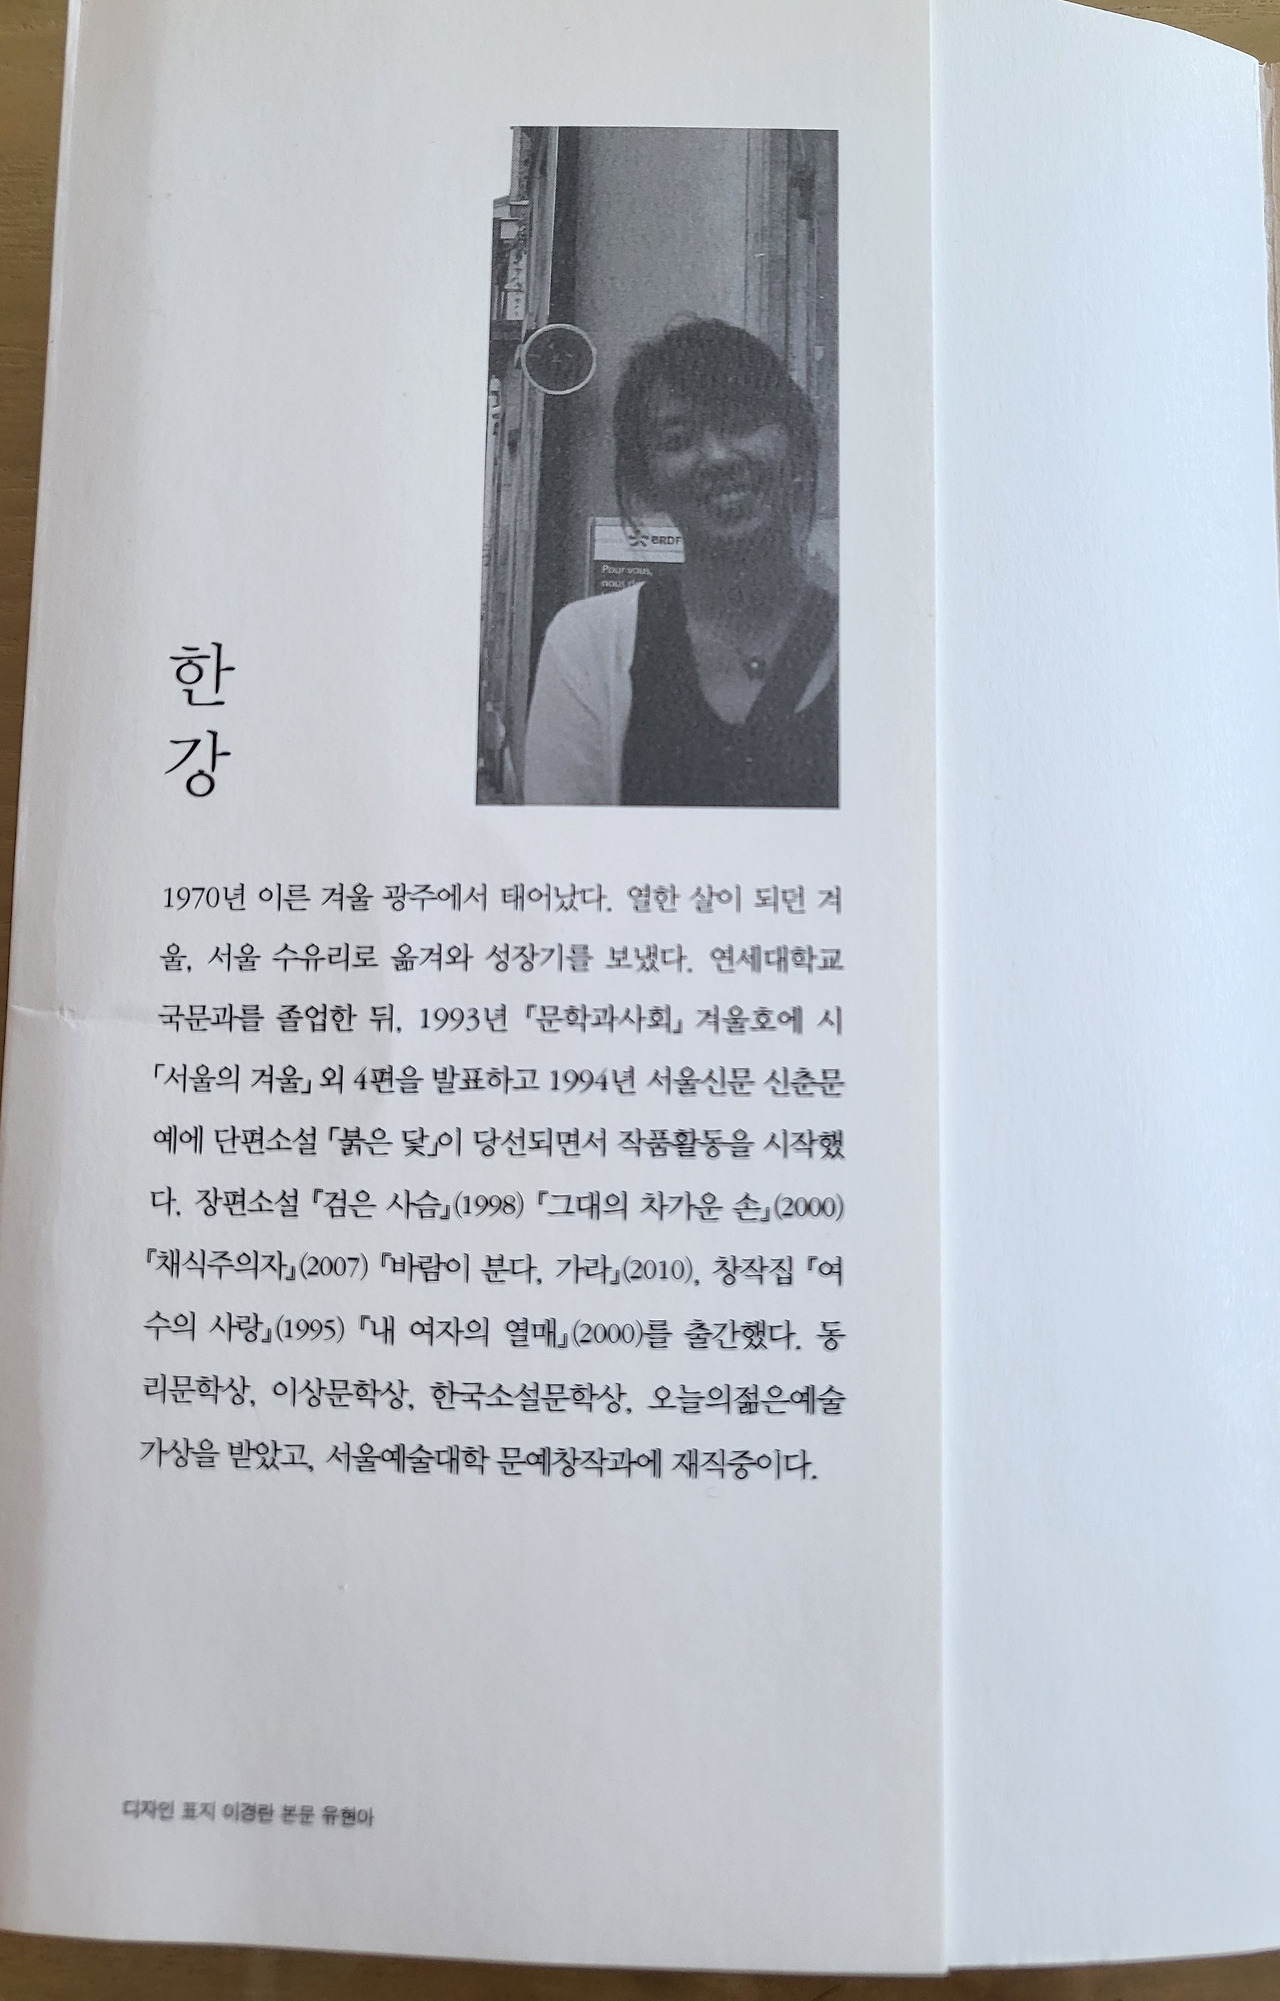 ERDF
Pour vous,
nous
한
강
1970년 이른 겨울 광주에서 태어났다. 열한 살이 되던 겨
울, 서울 수유리로 옮겨와 성장기를 보냈다. 연세대학교
국문과를 졸업한 뒤, 1993년 『문학과사회』 겨울호에 시
「서울의 겨울」 외 4편을 발표하고 1994년 서울신문 신춘문
예에 단편소설 「붉은 닻」이 당선되면서 작품활동을 시작했
다. 장편소설 『검은 사슴』(1998) 『그대의 차가운 손』(2000)
『채식주의자』(2007) 『바람이 분다, 가라』(2010), 창작집 『여
수의 사랑』(1995) 『내 여자의 열매』(2000)를 출간했다. 동
리문학상, 이상문학상, 한국소설문학상, 오늘의젊은예술
가상을 받았고, 서울예술대학 문예창작과에 재직중이다.
디자인 표지 이경란 본문 유현아